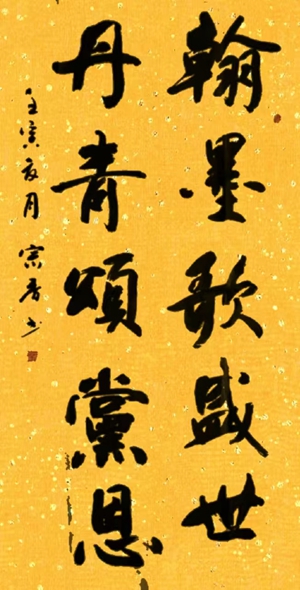 翰墨歌盛世
丹青頌黨恩
壬寅夏月宗春书